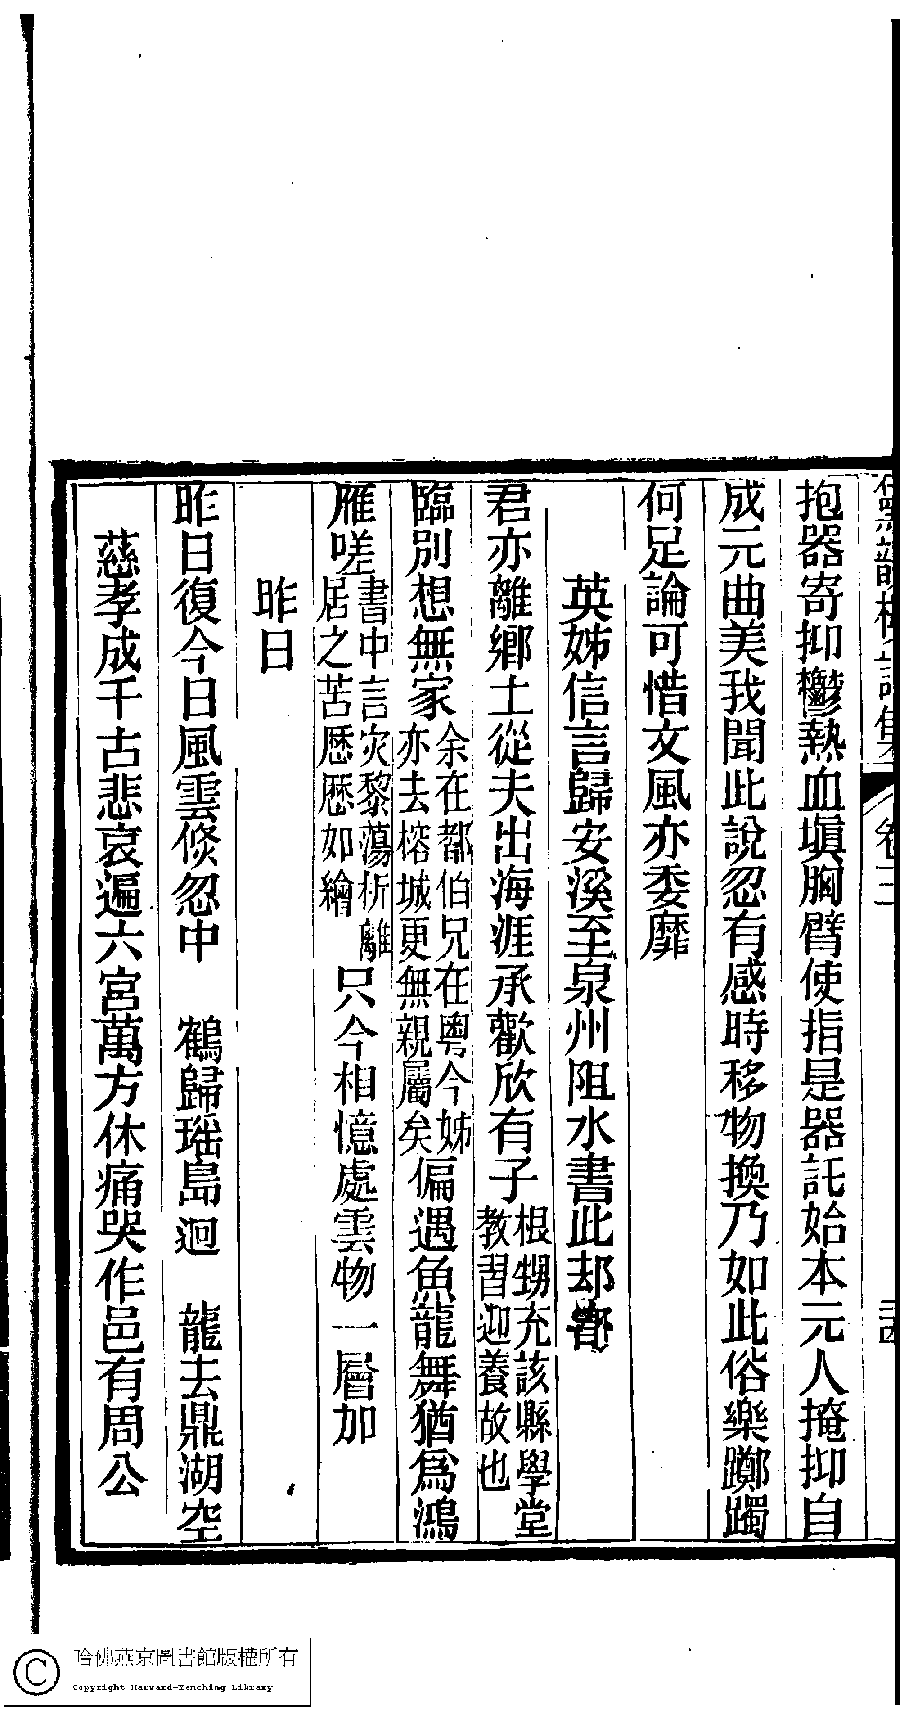 抱器寄抑鬱熱血塡胸臂使指是器託始本元人掩抑自
成元曲美我聞此說忽有感時移物換乃如此俗樂躑躅
何足論可惜文風亦委靡
英姊信言歸安溪至泉州阻水書此却寄
君亦離鄉土從夫出海涯承歡欣有子根甥充該縣學堂教習迎養故也
臨別想無家余在都伯兄在粵今姊亦去榕城更無親屬矣偏遇魚龍舞猶爲鴻
雁嗟書中言灾黎蕩析離居之苦歷歷如繪只今相憶處雲物一層加
昨日
昨日復今日風雲倐忽中 鶴歸瑤島迥 龍去鼎湖空
慈孝成千古悲哀遍六宮萬方休痛哭作邑有周公
哈佛燕京圖書館版權所有
Copyright Harvard-Yenching Library